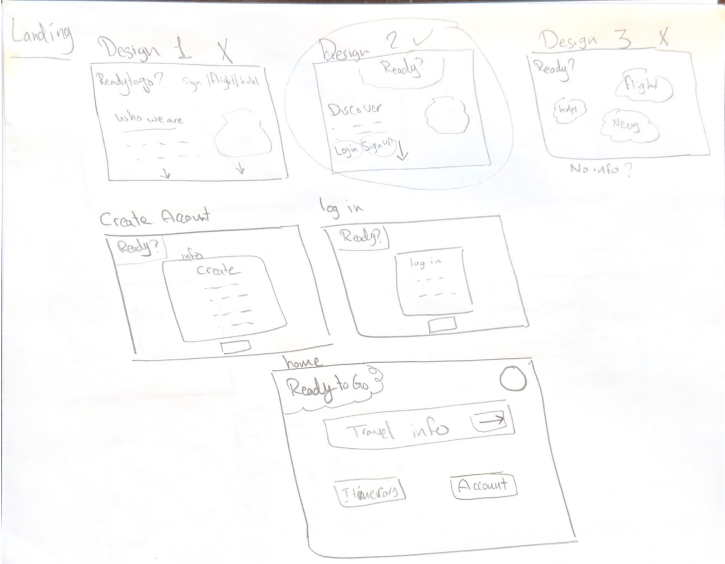 Landing
Design 1 X
Design 2 ✓
Design 3 X
Readytogo? Sign | flight | hotel
who we are
Ready?
Discover
Login Sign up
Ready?
flight
hotel
No info?
Create Account
Ready?
info
Create
log in
Ready?
log in
home
Ready to Go
Travel info →
Itinerary
Account